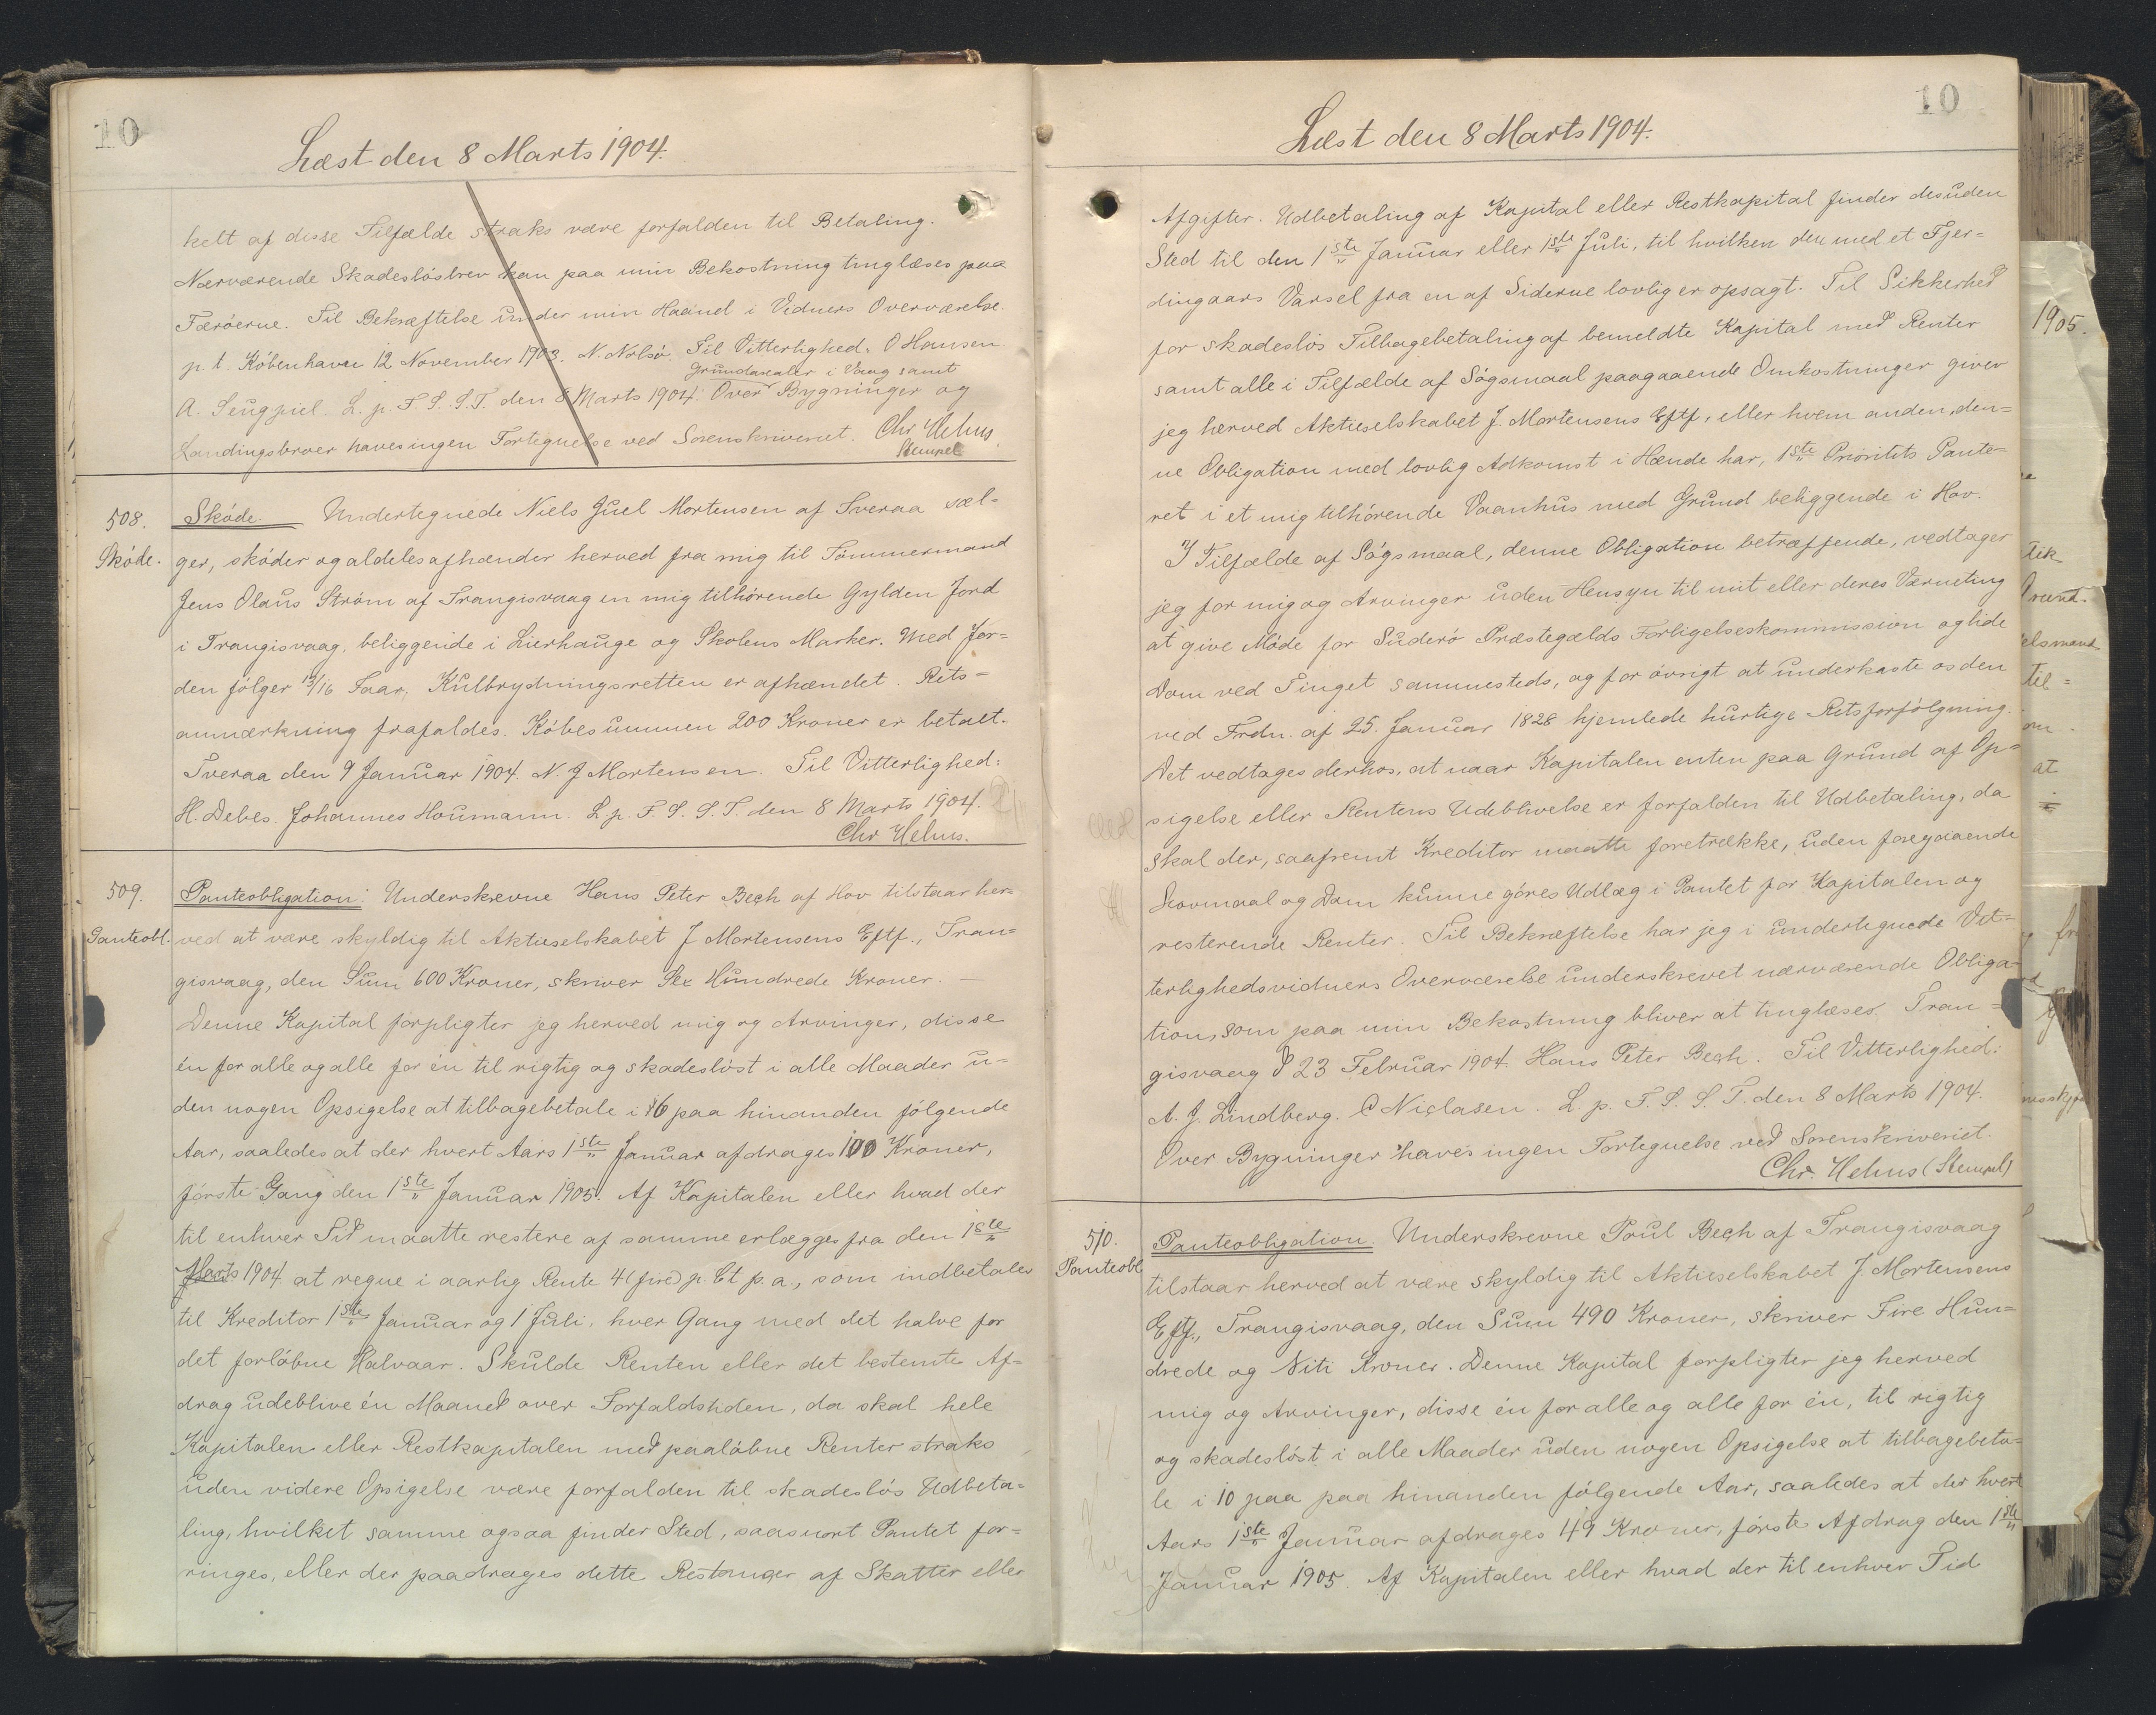 10
Læst den 8 Marts 1904.
kelt af disse Tilfælde straks være forfalden til Betaling.
Nærværende Skadesløsbrev kan paa min Bekostning tinglæses paa
Færøerne. Til Bekræftelse under min Haand i Vidners Overværelse.
p. t. København 12 November 1903. N. Nolsø. Til Vitterlighed. O Hansen.
Grundarealer i Vaag samt
A. Sengpiel. L. p. F. S. S. T. den 8 Marts 1904. Over Bygninger og
Landingsbroer haves ingen Fortegnelse ved Sorenskriveriet. Chr Helms.
Stempel
508. Skøde. Undertegnede Niels Juel Mortensen af Tveraa sæl-
Skøde. ger, skøder og aldeles afhænder herved fra mig til Tømmermand
Jens Olaus Strøm af Trangisvaag en mig tilhørende Gylden Jord
i Trangisvaag, beliggende i Lierhauge og Skolens Marker. Med Jor-
den følger 13/16 Faar. Kulbrydningsretten er afhændet. Rets-
anmærkning frafaldes. Købesummen 200 Kroner er betalt.
Tveraa den 9 Januar 1904. N. J Mortensen. Til Vitterlighed:
H. Debes. Johannes Houmann. L. p. F. S. S. T. den 8 Marts 1904.
Chr Helms.
509. Panteobligation: Underskrevne Hans Peter Bech af Hov tilstaar her-
Panteobl. ved at være skyldig til Aktieselskabet J Mortensens Eftf., Tran-
gisvaag, den Sum 600 Kroner, skriver Sex Hundrede Kroner.
Denne Kapital forpligter jeg herved mig og Arvinger, disse
én for alle og alle for én til rigtig og skadesløst i alle Maader u-
den nogen Opsigelse at tilbagebetale i 6 paa hinanden følgende
Aar, saaledes at der hvert Aars 1ste Januar afdrages 100 Kroner,
første Gang den 1ste Januar 1905. Af Kapitalen eller hvad der
til enhver Tid maatte restere af samme erlægges fra den 1ste
Marts 1904 at regne i aarlig Rente 4 (fire) p. Ct p. a., som indbetales
til Kreditor 1ste Januar og 1 Juli, hver Gang med det halve for
det forløbne Halvaar. Skulde Renten eller det bestemte Af-
drag udeblive én Maaned over Forfaldstiden, da skal hele
Kapitalen eller Restkapitalen med paaløbne Renter straks
uden videre Opsigelse være forfalden til skadesløs Udbeta-
ling, hvilket samme ogsaa finder Sted, saasnart Pantet for-
ringes, eller der paadrages dette Restancer af Skatter eller
10
Læst den 8 Marts 1904.
Afgifter. Udbetaling af Kapital eller Restkapital finder desuden
Sted til den 1ste Januar eller 1ste Juli, til hvilken den med et Fjer-
dingaars Varsel fra en af Siderne lovlig er opsagt. Til Sikkerhed
for skadesløs Tilbagebetaling af bemeldte Kapital med Renter
samt alle i Tilfælde af Søgsmaal paagaaende Omkostninger giver
jeg herved Aktieselskabet J. Mortensens Eftf, eller hvem anden, den-
ne Obligation med lovlig Adkomst i Hænde har, 1ste Prioritets Pante-
ret i et mig tilhørende Vaanhus med Grund beliggende i Hov.
I Tilfælde af Søgsmaal, denne Obligation betræffende, vedtager
jeg for mig og Arvinger uden Hensyn til mit eller deres Værneting
at give Møde for Suderø Præstegælds Forligelseskommission og lide
Dom ved Tinget sammesteds, og for øvrigt at underkaste os den
ved Frdn. af 25. Januar 1828 hjemlede hurtige Retsforfølgning.
Det vedtages derhos, at naar Kapitalen enten paa Grund af Op-
sigelse eller Rentens Udeblivelse er forfalden til Udbetaling, da
skal der, saafremt Kreditor maatte foretrække, uden foregaaende
Lovmaal og Dom kunne gøres Udlæg i Pantet for Kapitalen og
resterende Renter. Til Bekræftelse har jeg i undertegnede Vit-
terlighedsvidners Overværelse underskrevet nærværende Obliga-
tion, som paa min Bekostning bliver at tinglæses. Tran-
gisvaag d 23 Februar 1904. Hans Peter Bech. Til Vitterlighed:
A. J. Lindberg. C Niclasen. L. p. F. S. S. T. den 8 Marts 1904.
Over Bygninger haves ingen Fortegnelse ved Sorenskriveriet.
Chr. Helms (Stempel)
510. Panteobligation. Underskrevne Poul Bech af Trangisvaag
Panteobl tilstaar herved at være skyldig til Aktieselskabet J. Mortensens
Eftf., Trangisvaag, den Sum 490 Kroner, skriver Fire Hun-
drede og Niti Kroner. Denne Kapital forpligter jeg herved
mig og Arvinger, disse én for alle og alle for én, til rigtig
og skadesløst i alle Maader uden nogen Opsigelse at tilbagebeta-
le i 10 paa paa hinanden følgende Aar, saaledes at der hvert
Aars 1ste Januar afdrages 49 Kroner, første Afdrag den 1ste
Januar 1905. Af Kapitalen eller hvad der til enhver Tid
1905.
elsmand
til-
om
at